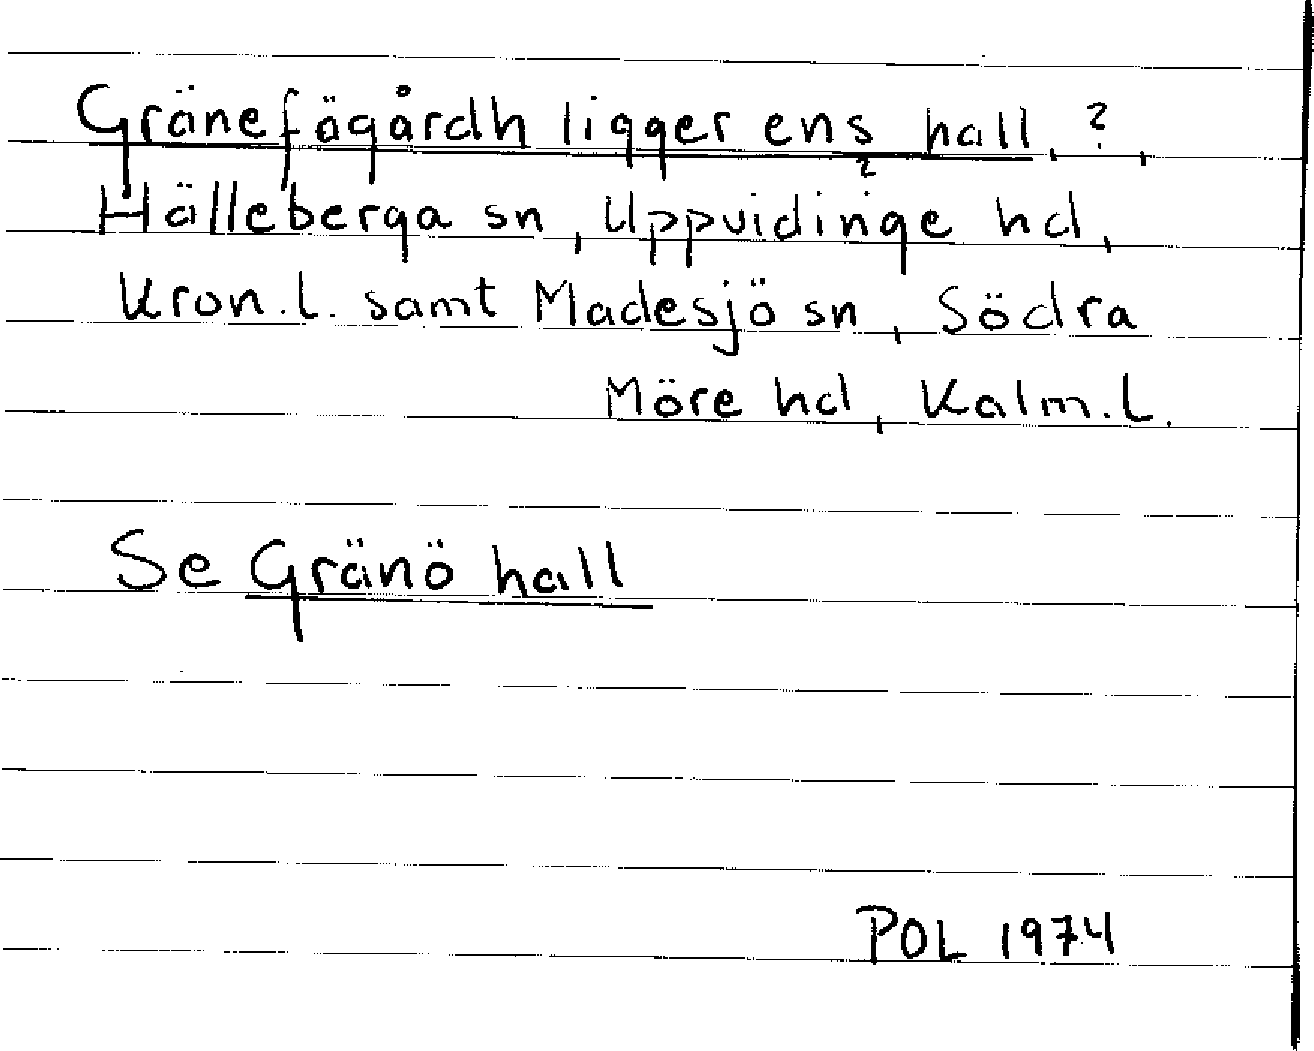 Gränefägårdh ligger ens hall, ?,
?
Hälleberga sn, Uppvidinge hd,
Kron.l. samt Madesjö sn, Södra
Möre hd, Kalm.l.
Se Gränö hall
POL 1974